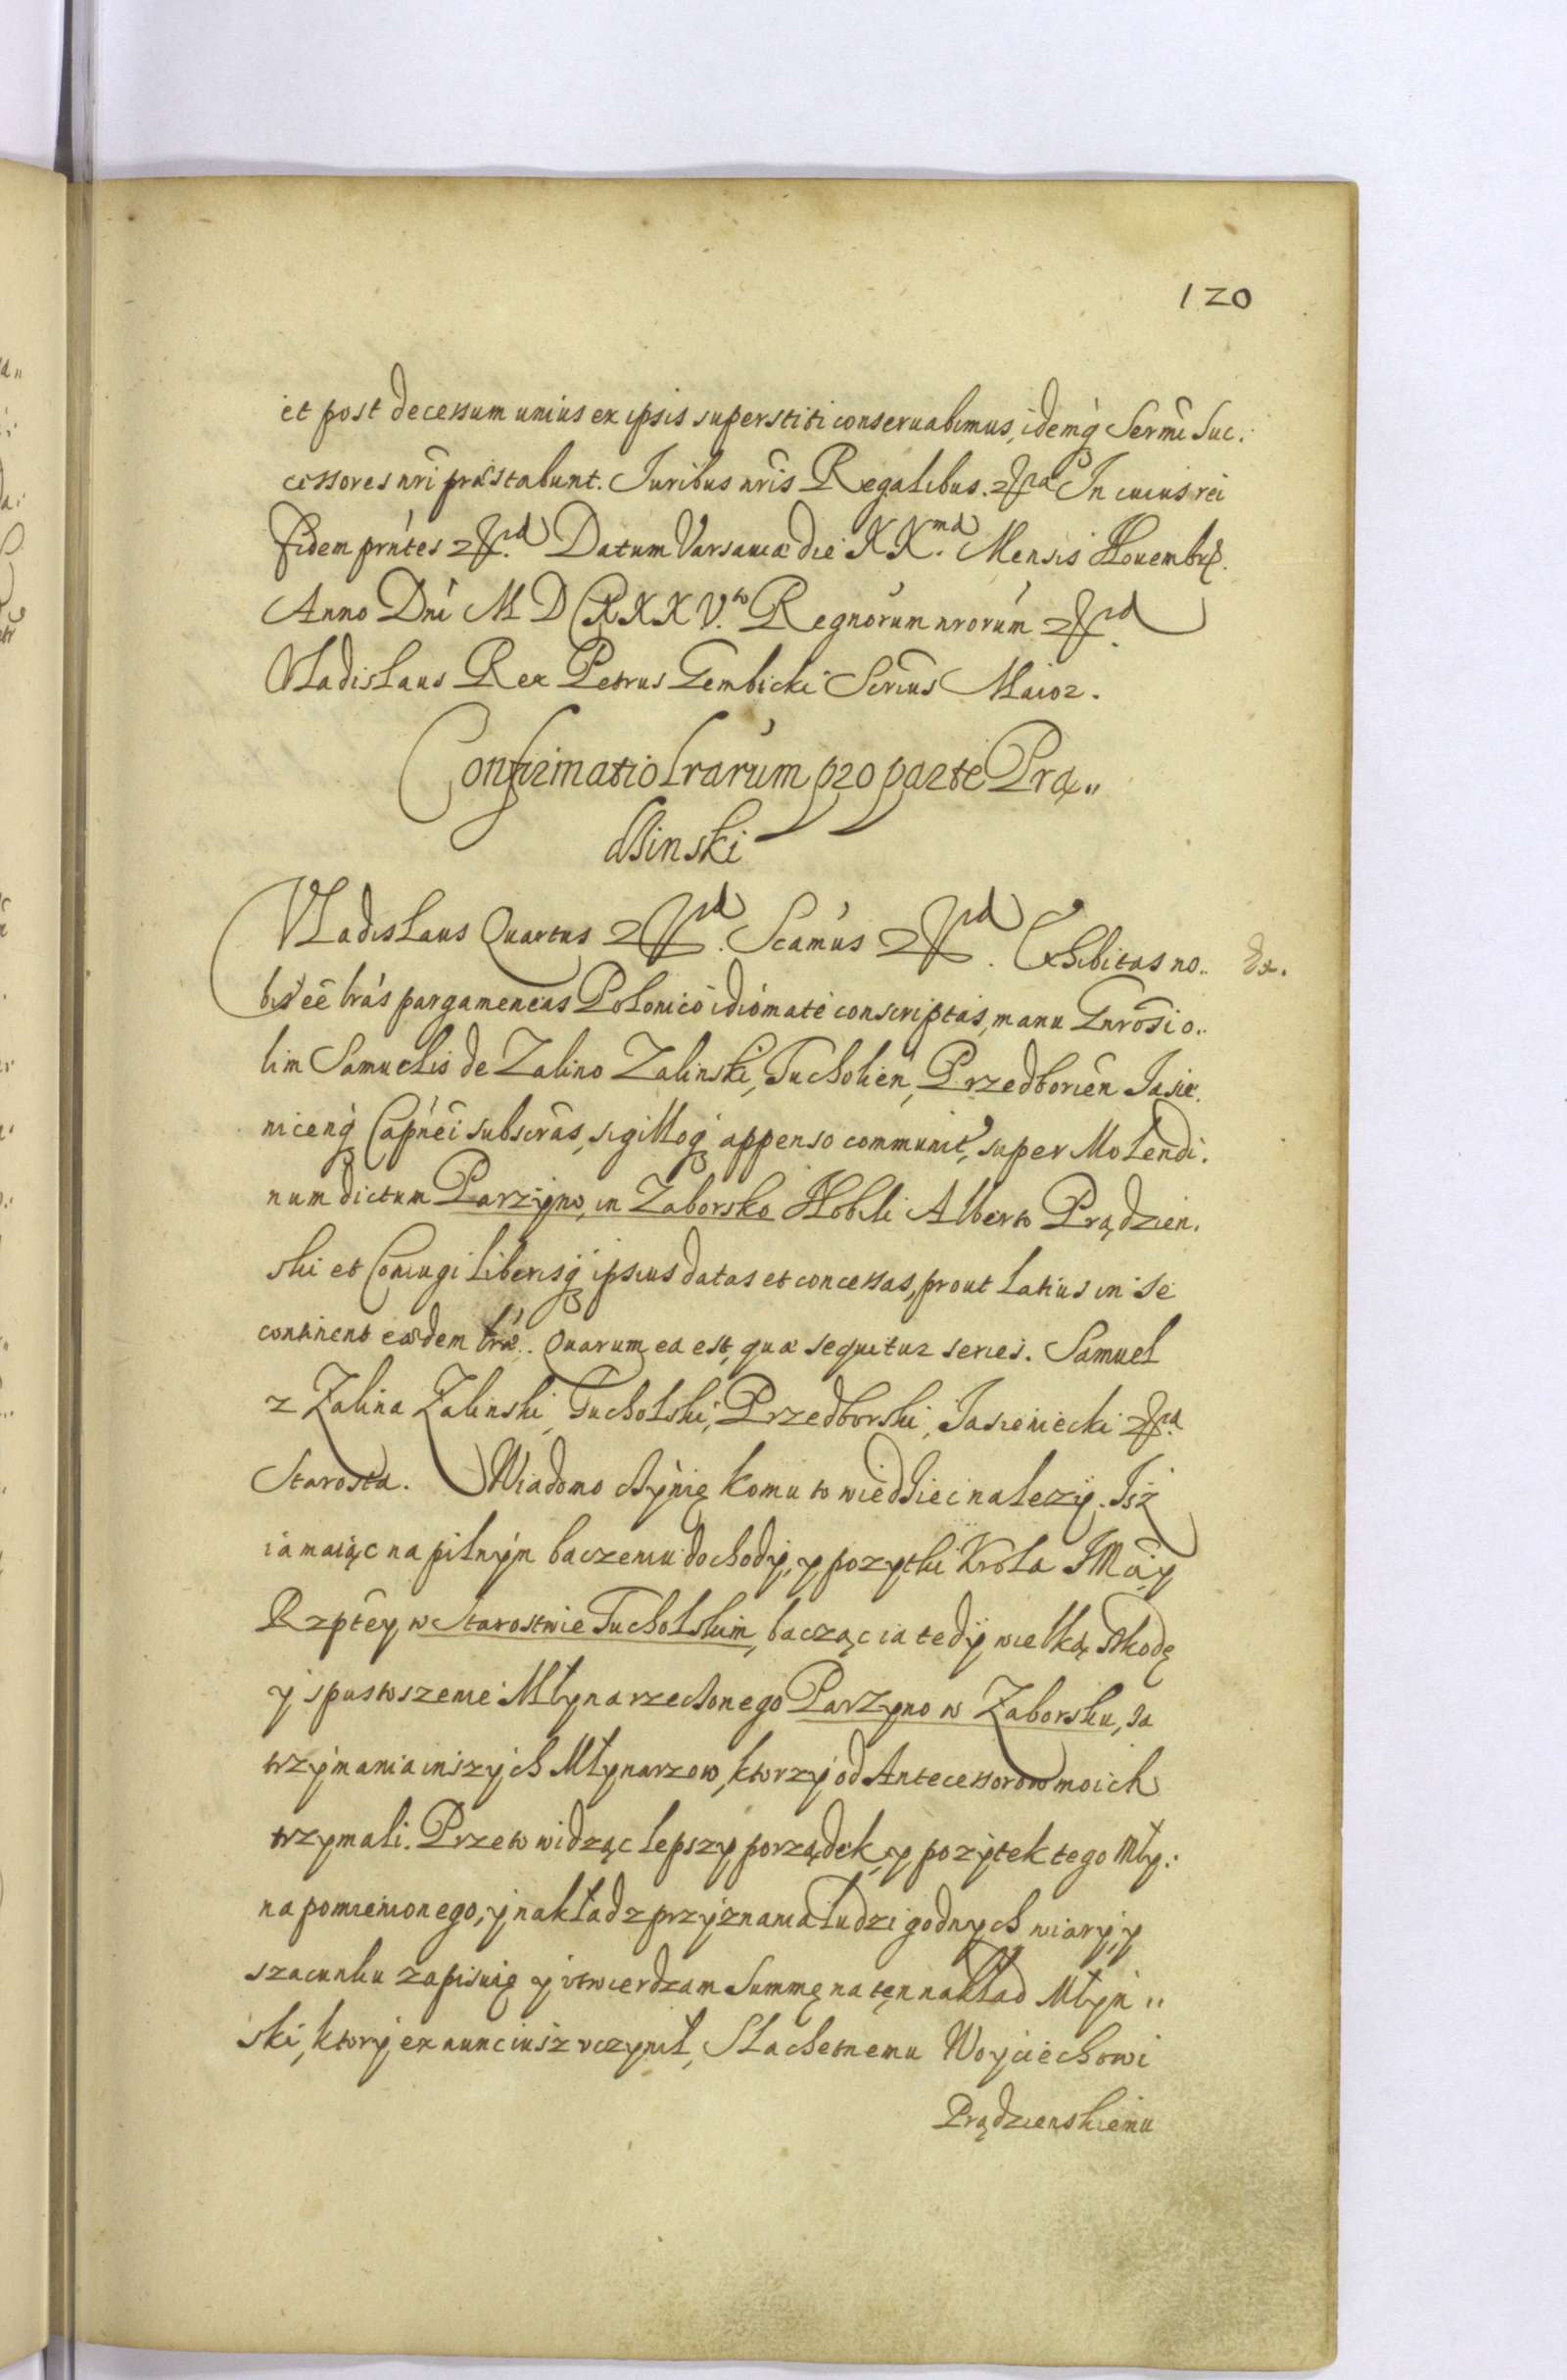 120
et post decessum unius ex ipsis superstiti conseruabimus, idemq́ Sermi Suc.
cessores nri præstabunt. Iuribus nris Regalibus. &ra In cuius rei
fidem prntes &ra Datum Varsauiæ die XX.ma Mensis Nouembr.
Anno Dni M D CXXXV.to Regnorum nrorum &ra
Vladislaus Rex Petrus Gembicki Scrius Maior.
Confirmatio Lrarum pro parte Prą„
dzinski
Vladislaus Quartus &ra. Scamus &ra. Exhibitas no..
bis eê lras pargameneas Polonico idiomate conscriptas, manu Gnrosi o..
lim Samuelis de Zalino Zalinski, Tucholien, Przedborien Iasie.
niceng Capnei subscras, sigilloq appenso communit, super Molendi.
num dictum Parzyno, in Zaborsko Nobili Alberto Prądzien.
ski et Coniugi liberisq ipsius datas et concessas, prout latius in se
continent eædem lræ.. Quarum ea est, quæ sequitur series. Samuel
z Zalina Zalinski, Tucholski, Przedborski, Iasieniecki &ra
Starosta. Wiadomo czynię komu to wiedziec nalezy. Isz
ia maiąc na pilnym baczeniu dochody, y pozytki Krola JMci, y
Rzptey w Starostwie Tucholskim, bacząc ia tedy wielką szkodę
y spustoszenie Młyna rzeczonego Parzyno w Zaborsku, za
trzymania inszych Młynarzow, ktorzy od Antecessorow moich
trzymali. Przeto widząc lepszy porządek, y pozytek tego Mły:
na pomienionego, y nakład z przyznania ludzi godnych wiary, y
szacunku zapisuię y vtwierdzam Summę na ten nakład Młyn„
ski, ktory ex nunc iusz vczynił, Slachetnemu Woyciechowi
Prądzienskiemu